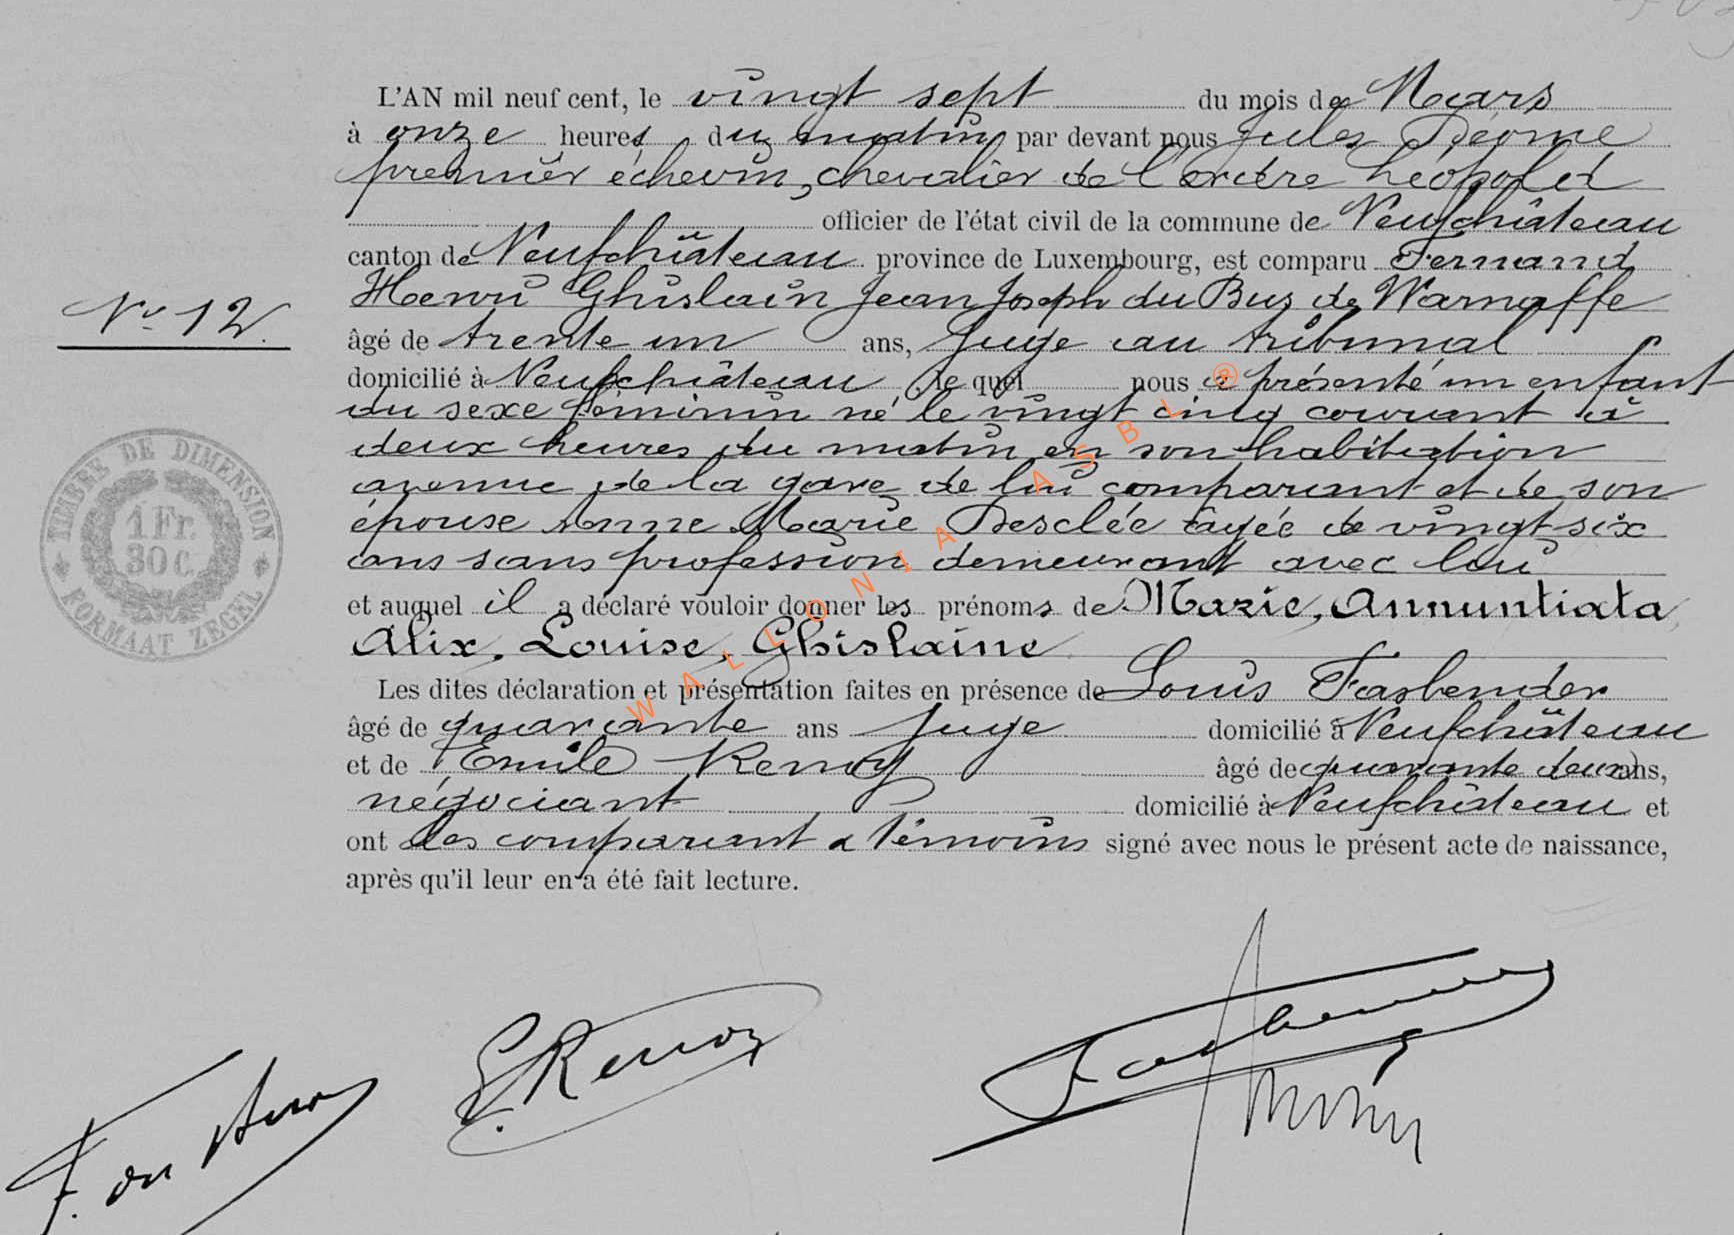 L'AN mil neuf cent, le vingt sept du mois de Mars
à onze heures du matin par devant nous Jules Déome
premier échevin, chevalier de l'ordre Léopold
officier de l'état civil de la commune de Neufchâteau
canton de Neufchâteau province de Luxembourg, est comparu Fernand
Henri Ghislain Jean Joseph du Bus de Warnaffe
N° 12.
âgé de trente un ans, juge au tribunal
domicilié à Neufchâteau le quel nous a présenté un enfant
du sexe féminin né le vingt cinq courant à
deux heures du matin en son habitation
avenue de la gare de lui comparant et de son
épouse Anne Marie Desclée âgée de vingt-six
ans sans profession demeurant avec lui
et auquel il a déclaré vouloir donner les prénoms de Marie, Annuntiata,
Alix, Louise, Ghislaine
Les dites déclaration et présentation faites en présence de Louis Fasbender
âgé de quarante ans juge domicilié à Neufchâteau
et de Emile Renoy âgé de quarante deux ans,
négociant domicilié à Neufchâteau et
ont les comparant & témoins signé avec nous le présent acte de naissance,
après qu'il leur en a été fait lecture.
TIMBRE DE DIMENSION
1 Fr.
30 C.
FORMAAT ZEGEL
WALLONIA ASBL ®
E. Renoy
Fasbender
F. du Bus